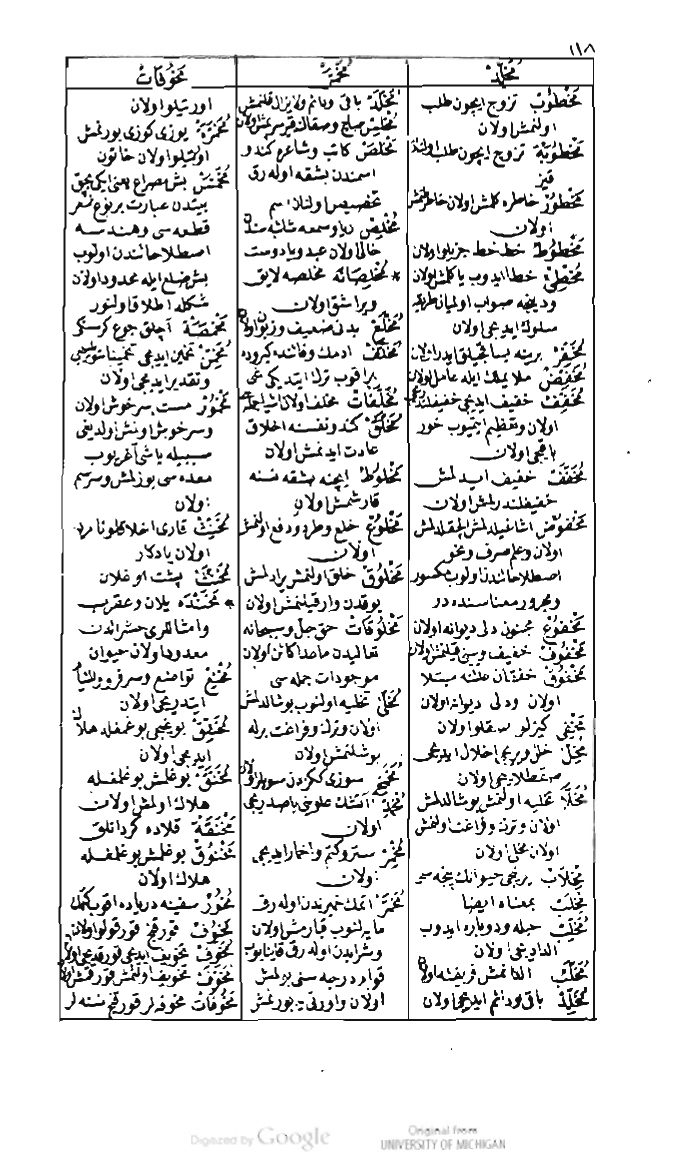 ١١٨
مُخَلِّدْ
مُخَمَّرْ
مَخُوفَاتْ
مَخْطُوبْ تزوج ايچون طلب
اولنمش اولان
مَخْطُوبَة تزوج ايچون طلب اولنان
قيز
مَخْطُورْ خاطره كلمش اولان خاطرلنمش
اولان
مَخْطُوطْ خط خط جزيلو اولان
مُخْطِئْ خطا ايدوب ياكلمش اولان
ودينجه صواب اولميان طريقه
سلوك ايديجى اولان
مُخَفَّرْ
مُخَفِّضْ ملايملك ايله عامل اولان
مُخَفِّفْ خفيف ايديجى خفيفلنديجى
اولان وتعظيم ايتميوب خور
باقيجى اولان
مُخَفَّفْ خفيف ايدلمش
خفيفلندرلمش اولان
مَخْفُوضْ اشاغيلدلمش الچقلدلمش
اولان وعلم صرف ونحو
اصطلاحاتندن اولوب مكسور
ومجرور معناسنده در
مَخْفُوعْ مجنون دلى ديوانه اولان
مَخْفُوفْ خفيف
مَخْفُوقْ خفقان علتنه مبتلا
اولان ودلى ديوانه اولان
مَخْفِى كيزلو سقلو اولان
مُخِلّْ خلل ويريجى اخلال ايديجى
صقطلايجى اولان
مُخَلَّا تخليه اولنمش بوشالدلمش
اولان وترك وفراغت اولنمش
اولان محلى اولان
مِخْلَابْ يرتجى حيوانك پنجه سى
مِخْلَبْ بمعناه ايضا
مُخَلِّبْ حيله ودوباره ايدوب
الداديجى اولان
مُخَلَّبْ الدانمش فريفته اولان
مُخَلِّدْ باقى ودائم ايديجى اولان
مُخَلَّدْ باقى ودائم ولايزال قلنمش
مُخْلِسْ صاچ وصقالنه قير سرپمش اولان
مَخْلَصْ كاتب وشاعره كندو
اسمندن بشقه اوله رق
تخصيص اولنان اسم
مُخْلِصْ ريا وسمعه شائبه سندن
خالى اولان عبد ويا دوست
* مُخْلِصَانَه مخلصه لايق
ويراشق اولان
مُخَلَّعْ بدنى ضعيف وزبون اولان
مُخَلَّفْ ادمك وفاتنده كيروده
براقوب ترك ايتديكى شى
مُخَلَّفَاتْ مخلف اولان اشيا جمله سى
مُخَلَّقْ كندو نفسنه اخلاق
عادت ايدنمش اولان
مَخْلُوطْ ايچنه بشقه نسنه
قارشمش اولان
مَخْلُوعْ خلع وطرد ودفع اولنمش
اولان
مَخْلُوقْ خلق اولنمش يرادلمش
يوقدن وار قيلنمش اولان
مَخْلُوقَاتْ حق جل وسبحانه
تعاليدن ماعدا كائن اولان
موجودات جمله سى
مُخَلَّى تخليه اولنوب بوشالدلمش
اولان وترك وفراغت برله
بوشلنمش اولان
مُخِمّْ سوزى ككزدن سويلر اولان
مُخْمِدْ آتشك علوينى باصديريجى
اولان
مُخْمِرْ ستر وكتم واخمار ايديجى
اولان
مُخَمَّرْ اتمك خميرندن اوله رق
مايه لنوب قبارمش اولان
وشرابدن اوله رق قاينايوب
قوام درجه سنى بولمش
اولان واورتى يه بورنمش
اورتيلو اولان
مُخَمَّرَة يوزى كوزى بورنمش
اورتيلو اولان خاتون
مُخَمَّسْ بش مصراع يعنى ايكى بچق
بيتدن عبارت بر نوع شعر
قطعه سى وهندسه
اصطلاحاتندن اولوب
بش ضلع ايله محدود اولان
شكله اطلاق اولنور
مَخْمَصَة آچلق جوع كرسنكى
مُخَمِّنْ تخمين ايديجى تخمينا سويليجى
وتقدير ايديجى اولان
مَخْمُورْ مست سرخوش اولان
وسرخوش اولمش اولديغى
سببيله باشى آغريوب
معده سى بوزلمش وسرسم
اولان
مُخَنَّثْ
اولان يادكار
مُخَنَّثْ پشت اوغلان
* مُخَنَّدَه يلان وعقرب
وامثاللرى حشراتدن
معدود اولان حيوان
مُخْنِعْ تواضع وسرفرو والتجا
ايتديريجى اولان
مُخَنِّقْ بوغيجى بوغمغله هلاك
ايديجى اولان
مُخَنَّقْ بوغلمش بوغلمغله
هلاك اولمش اولان
مِخْنَقَة قلاده كردانلق
مَخْنُوقْ بوغلمش بوغلمغله
هلاك اولان
مُخَوِّرْ سفينه درياده
مَخُوفْ قورقنج قورقولو اولان
مُخَوِّفْ تخويف ايديجى قورقديجى اولان
مُخَوَّفْ تخويف اولنمش قورقمش اولان
مَخُوفَاتْ مخوفه لر قورقنج نسنه لر
Digitized by Google
Original from
UNIVERSITY OF MICHIGAN